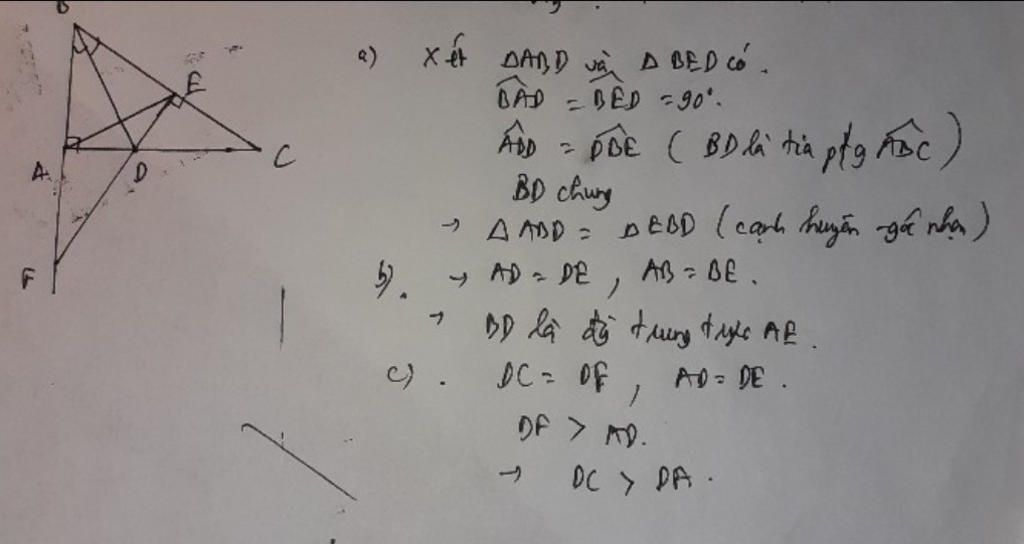 B
E
A
D
C
F
a) Xét ΔABD và ΔBED có.
B̂AD = B̂ED = 90°.
ÂBD = D̂BE ( BD là tia ptg ÂBC )
BD chung
→ ΔABD = ΔEBD ( cạnh huyền -góc nhọn )
b). → AD = DE , AB = BE .
→ BD là đg trung trực AE .
c) . DC = DF , AD = DE .
DF > AD.
→ DC > DA .